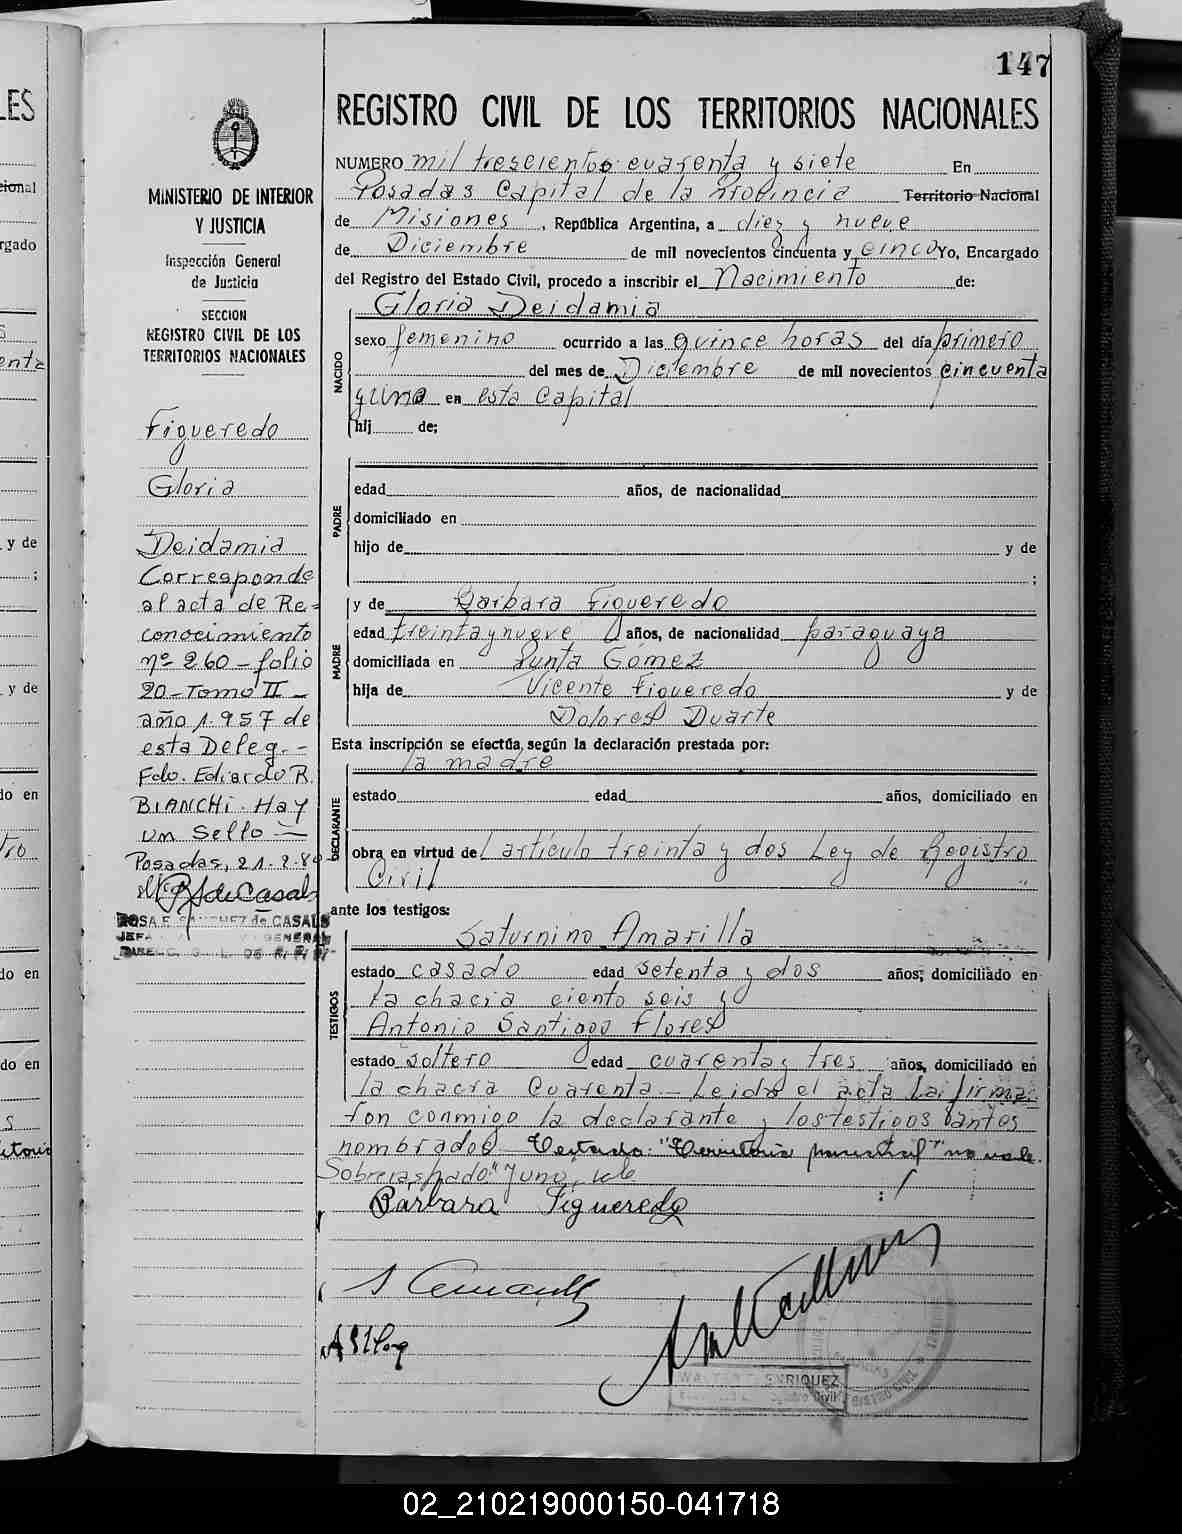 147
REGISTRO CIVIL DE LOS TERRITORIOS NACIONALES
MINISTERIO DE INTERIOR
Y JUSTICIA
Inspección General
de Justicia
SECCION
REGISTRO CIVIL DE LOS
TERRITORIOS NACIONALES
Figueredo
Gloria
Deidamia
Corresponde
al acta de Re-
conocimiento
nº 260 - folio
20 - Tomo II -
año 1.957 de
esta Deleg. -
Fdo. Eduardo R.
BIANCHI - Hay
un Sello -
Posadas, 21-2-80
RSdeCasals
ROSA E. SANCHEZ de CASALS
NUMERO mil trescientos cuarenta y siete En
Posadas Capital de la Provincia Territorio Nacional
de Misiones, República Argentina, a diez y nueve
de Diciembre de mil novecientos cincuenta y cinco Yo, Encargado
del Registro del Estado Civil, procedo a inscribir el Nacimiento de:
Gloria Deidamia
NACIDO
sexo femenino ocurrido a las quince horas del día primero
del mes de Diciembre de mil novecientos cincuenta
y uno en esta Capital
hij de;
PADRE
edad años, de nacionalidad
domiciliado en
hijo de y de
;
MADRE
y de Barbara Figueredo
edad treinta y nueve años, de nacionalidad paraguaya
domiciliada en Punta Gómez
hija de Vicente Figueredo y de
Dolores Duarte
Esta inscripción se efectúa, según la declaración prestada por:
la madre
DECLARANTE
estado edad años, domiciliado en
obra en virtud del artículo treinta y dos Ley de Registro
Civil
ante los testigos:
TESTIGOS
Saturnino Amarilla
estado casado edad setenta y dos años; domiciliado en
la chacra ciento seis y
Antonio Santiago Flores
estado soltero edad cuarenta y tres años, domiciliado en
la chacra Cuarenta - Leida el acta la firma-
ron conmigo la declarante y los testigos antes
nombrados - Testado: "Territorio nacional" no vale.
Sobreraspado "y uno, vale
Barbara Figueredo
ENRIQUEZ
02_210219000150-041718